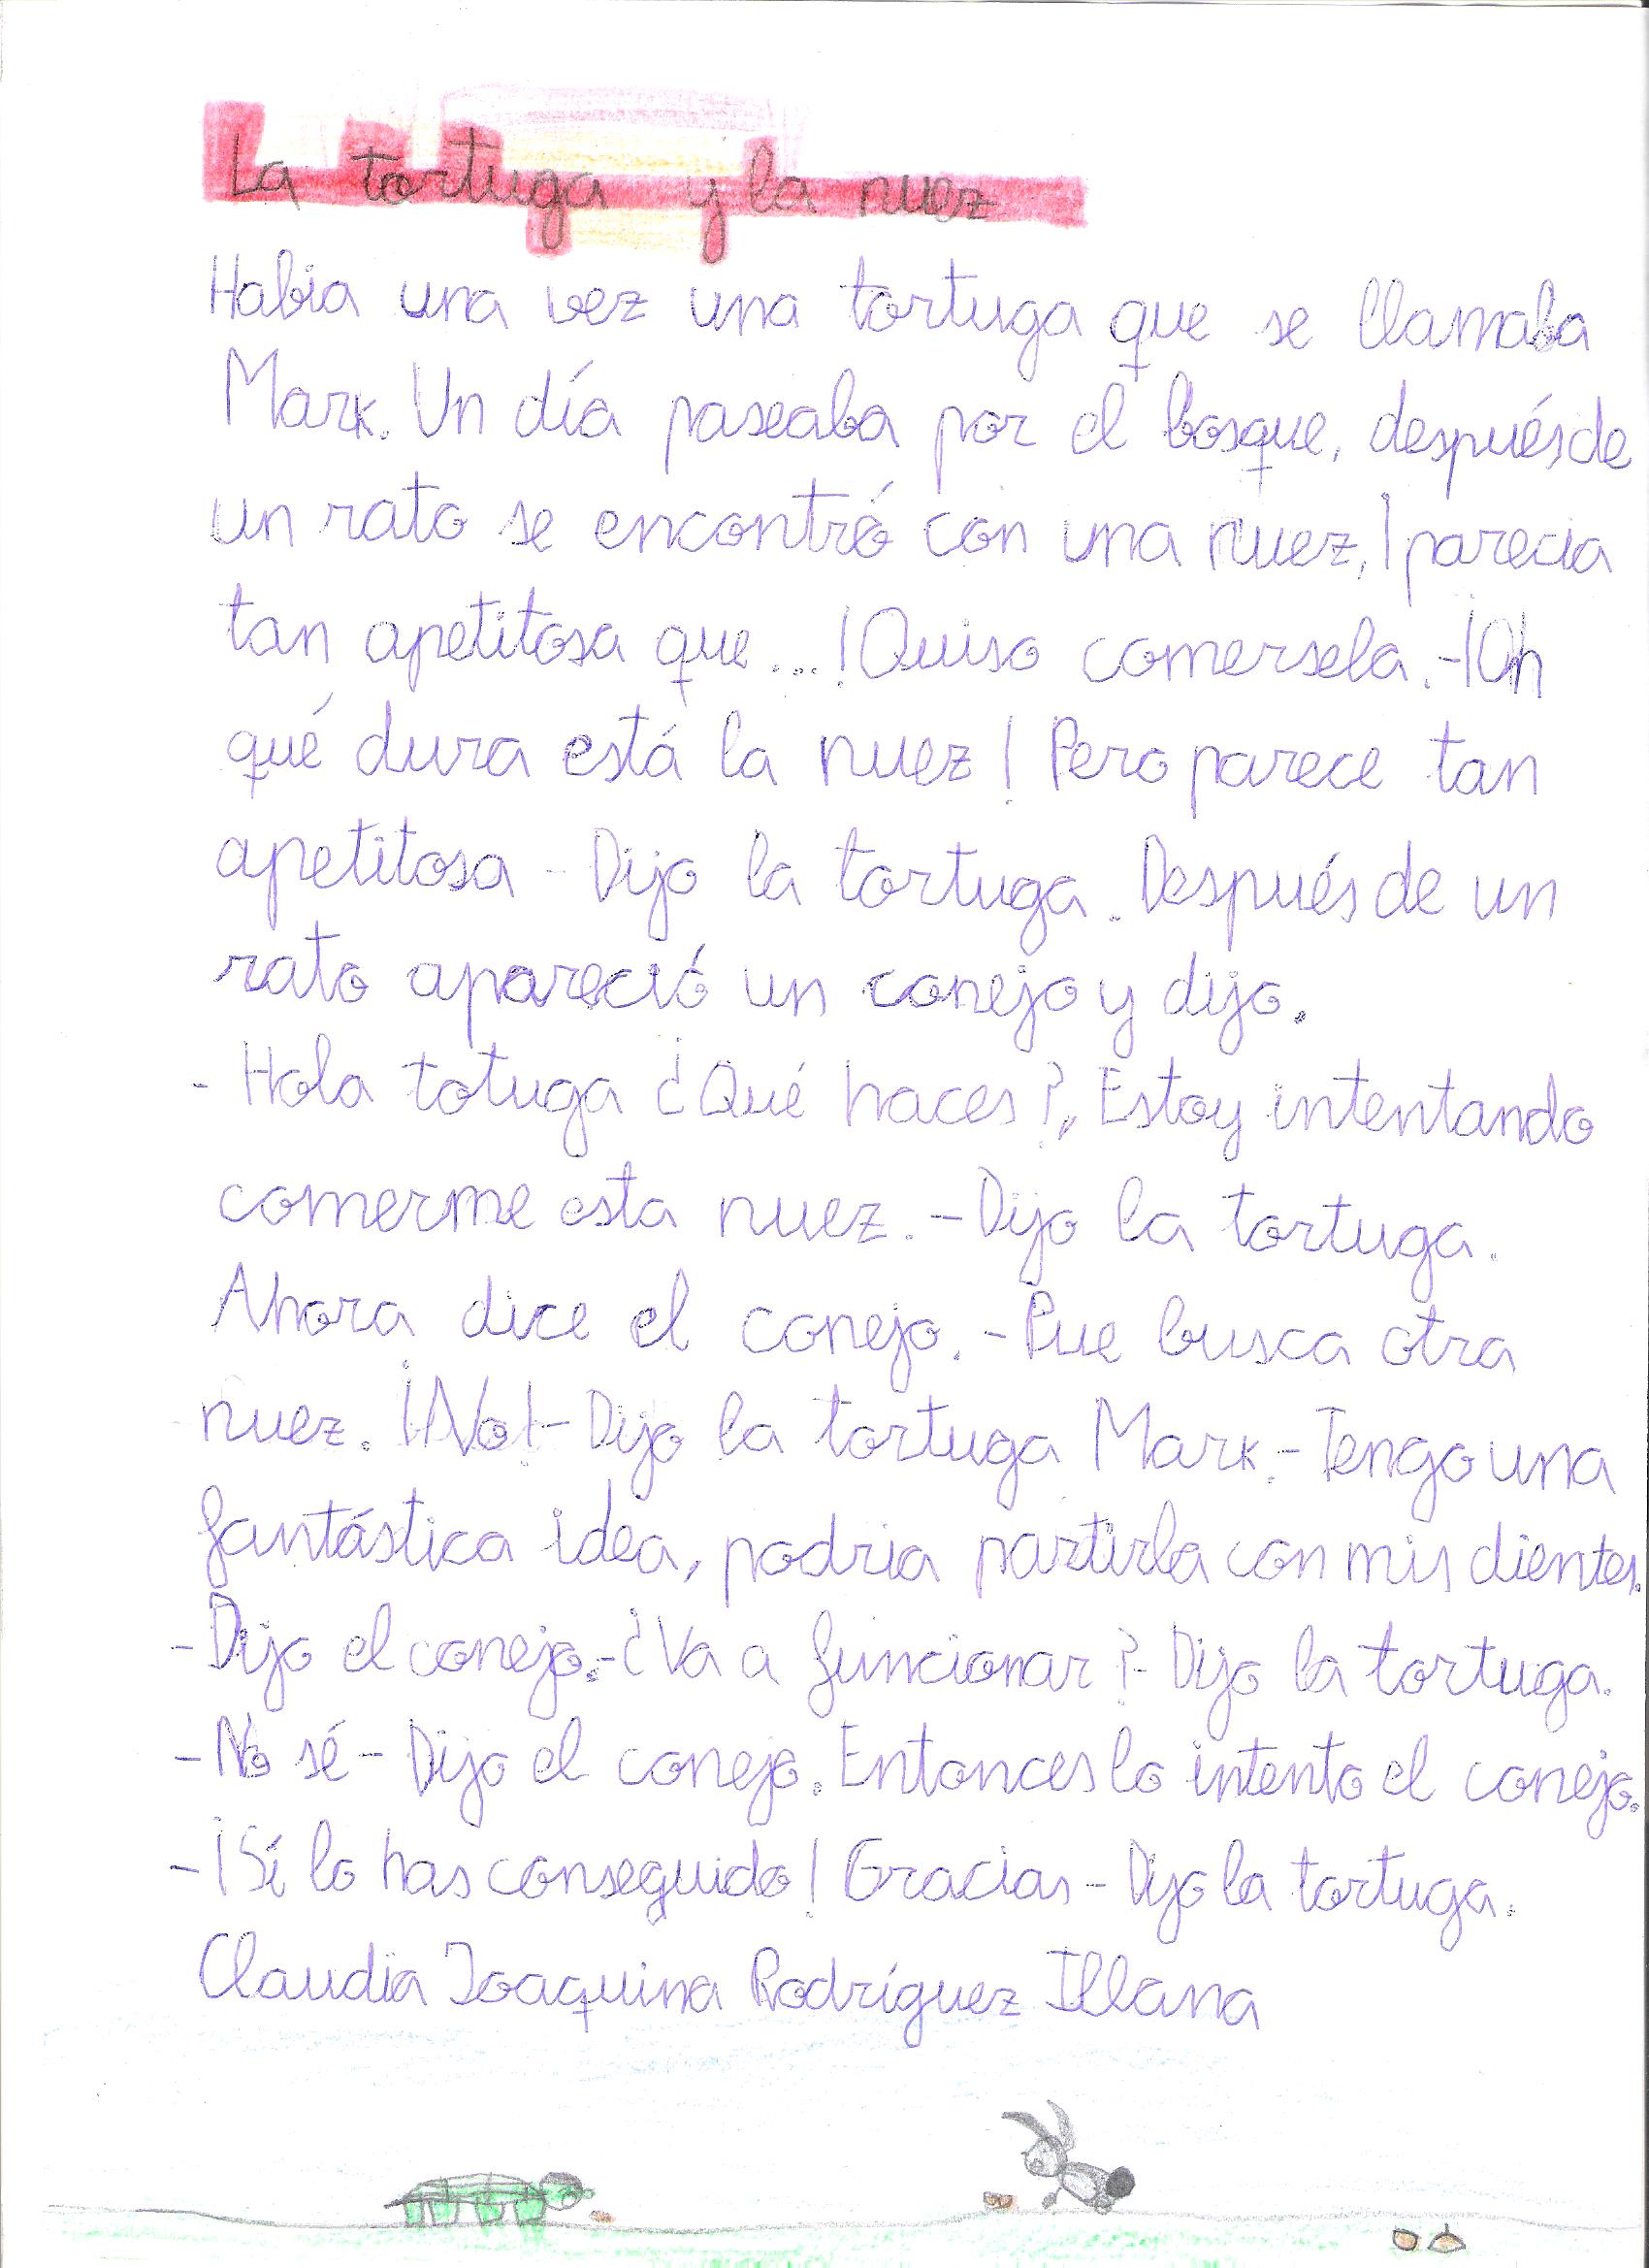 La tortuga y la nuez
Habia una vez una tortuga que se llamaba
Mark. Un día paseaba por el bosque, después de
un rato se encontró con una nuez, ¡parecia
tan apetitosa que...! Quiso comersela. -¡Oh
qué dura está la nuez! Pero parece tan
apetitosa - Dijo la tortuga. Después de un
rato apareció un conejo y dijo.
- Hola totuga ¿Qué haces?, Estoy intentando
comerme esta nuez. - Dijo la tortuga.
Ahora dice el conejo. - Pue busca otra
nuez. ¡No! - Dijo la tortuga Mark. - Tengo una
fantástica idea, podria partirla con mis dientes.
- Dijo el conejo. - ¿Va a funcionar? - Dijo la tortuga.
- No sé - Dijo el conejo. Entonces lo intento el conejo.
- ¡Sí lo has conseguido! Gracias - Dijo la tortuga.
Claudia Joaquina Rodríguez Illana